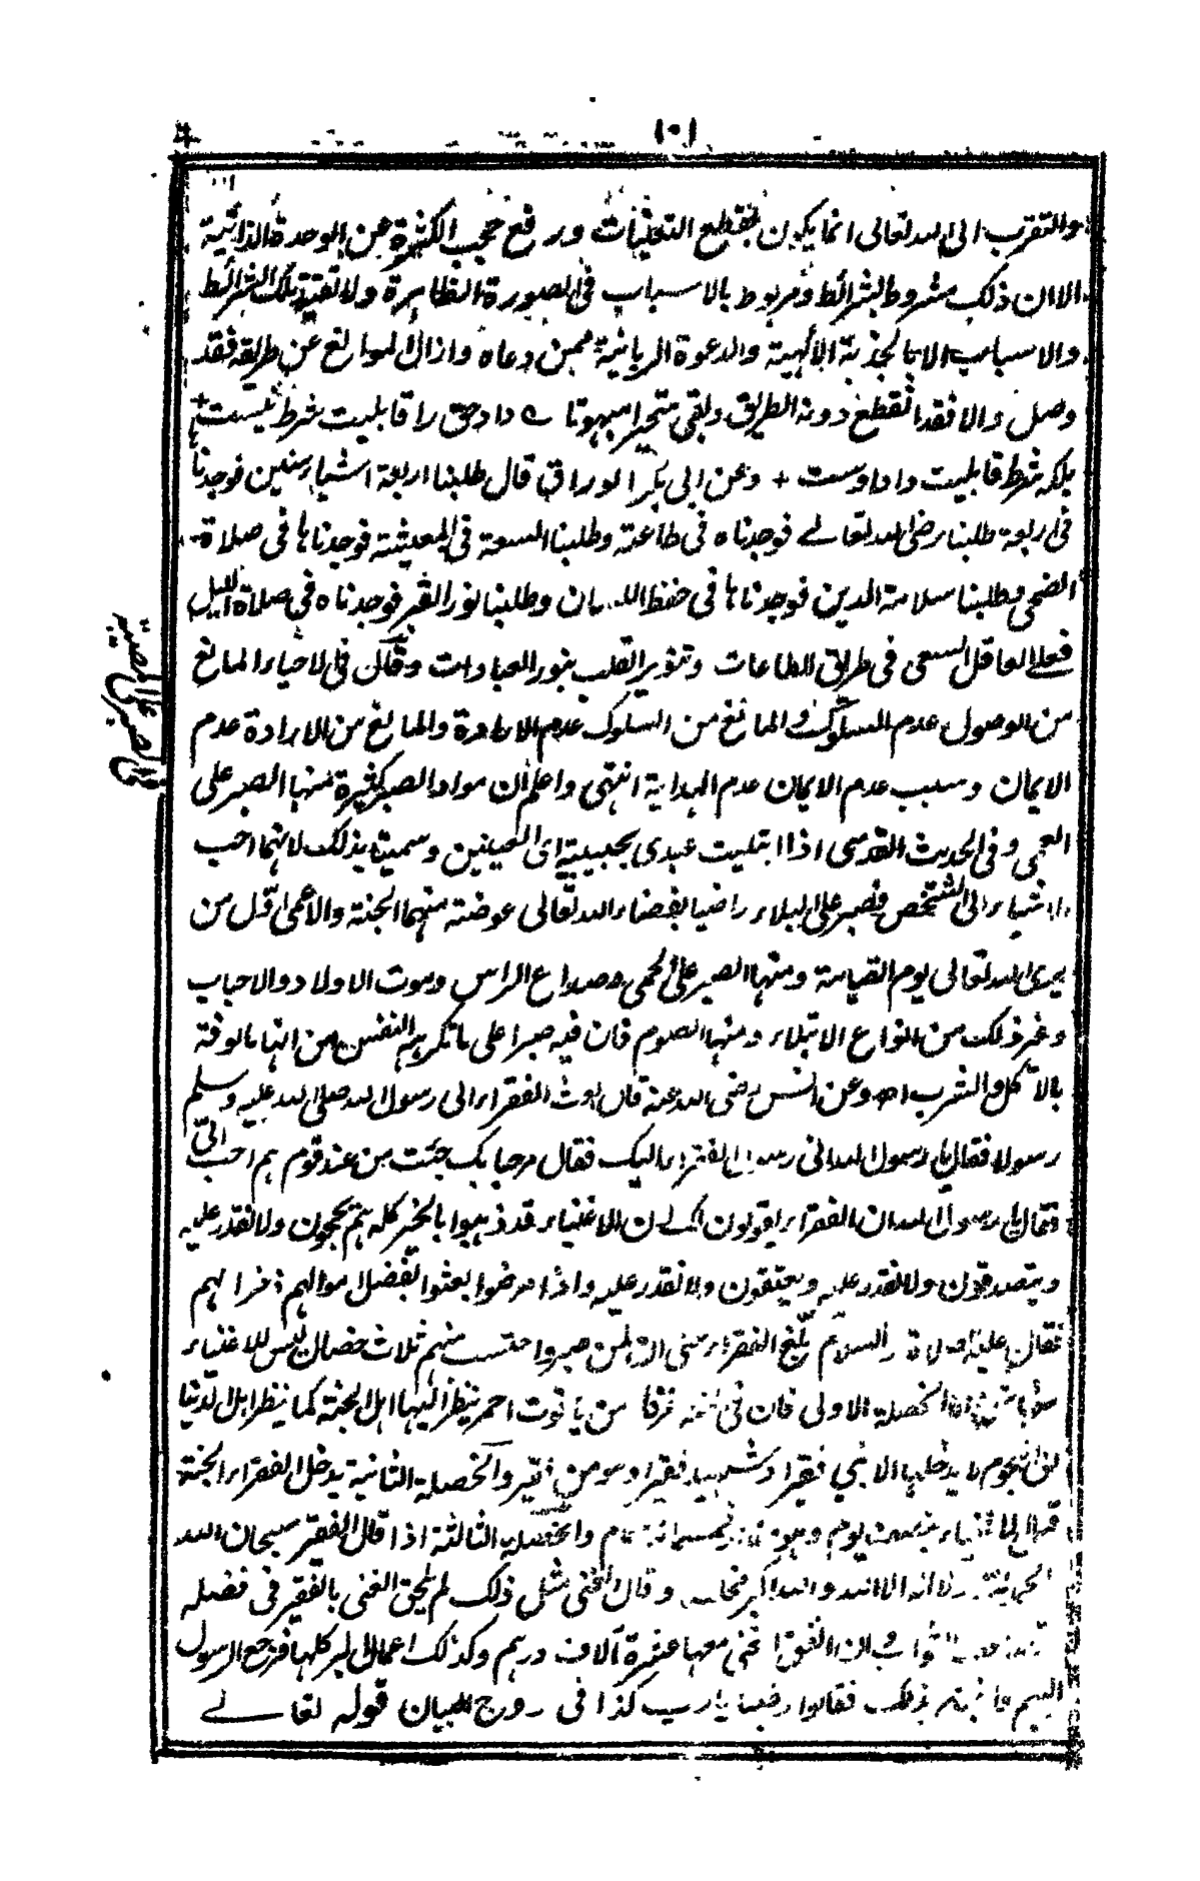 ١٠١
والتقرب الى الله تعالى انما يكون بقطع التعلقات ورفع حجب الكثرة عن الوحدة الذاتية
الا ان ذلك مشروط بشرائط ومربوط بالاسباب في الصورة الظاهرة ولا تقيد تلك الشرائط
والاسباب الا بالجذبة الالهية والدعوة الربانية فمن دعاه وازال الموانع عن طريقه فقد
وصل والا فقد انقطع دونه الطريق وبقى متحيرا مبهوتا ے داد حق را قابليت شرط نيست +
بلكه شرط قابليت داد اوست + وعن ابى بكر الوراق قال طلبنا اربعة اشياء سنين فوجدنا
فى اربعة طلبنا رضى الله تعالے فوجدناه فى طاعته وطلبنا السعة فى المعيشة فوجدناها فى صلاة
الضحى وطلبنا سلامة الدين فوجدناها فى حفظ اللسان وطلبنا نور القبر فوجدناه فى صلاة الليل
فعلے العاقل السعى فى طريق الطاعات وتنوير القلب بنور العبادات وقال فى الاحياء المانع
من الوصول عدم السلوك والمانع من السلوك عدم الارادة والمانع من الارادة عدم
الايمان وسبب عدم الايمان عدم الهداية انتهى واعلم ان مواد الصبر كثيرة منها الصبر على
العمى وفى الحديث القدسى اذا ابتليت عبدى بحبيبتيه اى العينين وسميتا بذلك لانهما احب
الاشياء الى الشخص فصبر على البلاء راضيا بقضاء الله تعالى عوضته منهما الجنة والاعمى اول من
يرى الله تعالى يوم القيامة ومنها الصبر على الحمى وصداع الراس وموت الاولاد والاحباب
وغير ذلك من انواع الابتلاء ومنها الصوم فان فيه صبرا على ما تكرهه النفس من انها مالوفة
بالاكل والشرب اھ وعن انس رضى الله عنه قال بعث الفقراء الى رسول الله صلى الله عليه وسلم
رسولا فقال يا رسول الله انى رسول الفقراء اليك فقال مرحبا بك جئت من عند قوم هم احب الىّ
فقال يا رسول الله ان الفقراء يقولون لك ان الاغنياء قد ذهبوا بالخير كله هم يحجون ولا نقدر عليه
ويتصدقون ولا نقدر عليه ويعتقون ولا نقدر عليه واذا مرضوا بعثوا بفضل اموالهم ذخرا لهم
فقال عليه الصلاة والسلام بلغ الفقراء منى ان لمن صبر واحتسب منهم ثلاث خصال ليس للاغنياء
الخصلة الاولى فان فى الجنة غرفا من ياقوت احمر ينظر اليها اهل الجنة كما ينظر اهل الدنيا
الى النجوم لا يدخلها الا نبي فقير او شهيد فقير او مومن فقير والخصلة الثانية يدخل الفقراء الجنة
قبل الاغنياء بنصف يوم وهو خمسمائة عام والخصلة الثالثة اذا قال الفقير سبحان الله
الحمد لله ولا اله الا الله والله اكبر مخلصا وقال الغنى مثل ذلك لم يلحق الغنى بالفقير فى فضله
الثواب وان انفق الغنى معها عشرة آلاف درهم وكذلك اعمال البر كلها فرجع الرسول
اليهم فاخبرهم بذلك فقالوا رضينا يا رب كذا فى روح البيان قوله تعالے